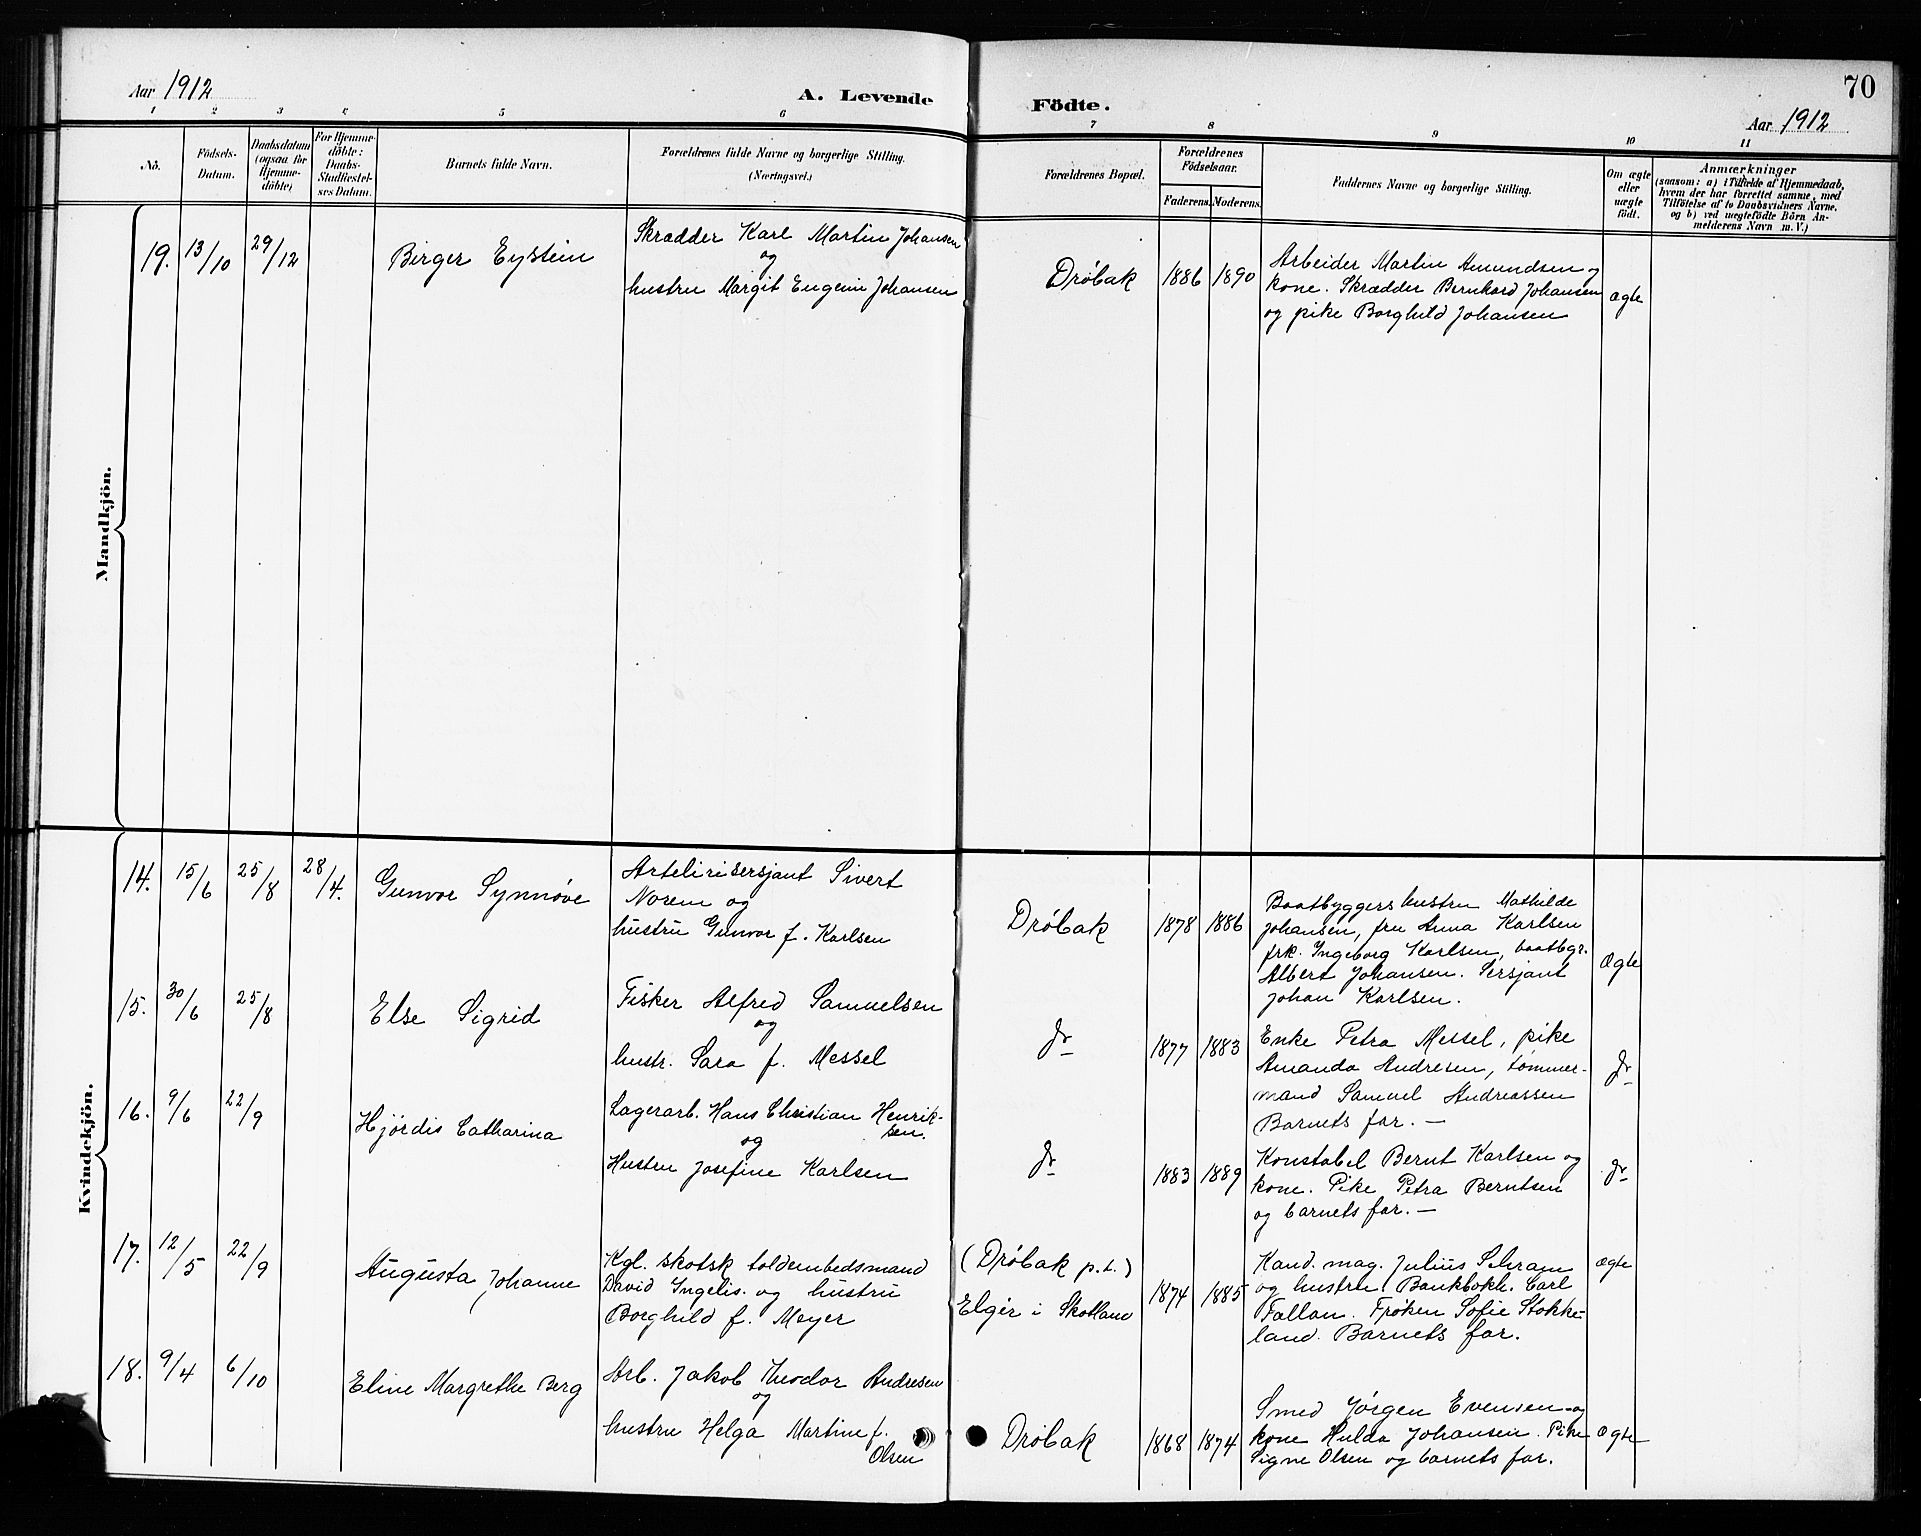 Aar 1912
A. Levende Födte.
70
Aar 1912
1 2 3 4 5 6 7 8 9 10 11
No.
Födsels-
Datum.
Daabsdatum
(ogsaa for
Hjemme-
döbte)
For Hjemme-
döbte:
Daabs-
Stadfæstel-
ses Datum.
Barnets fulde Navn.
Forældrenes fulde Navne og borgerlige Stilling.
(Næringsvei.)
Forældrenes Bopæl.
Forældrenes
Födselsaar.
Faderens. Moderens.
Faddernes Navne og borgerlige Stilling.
Om ægte
eller
uægte
födt.
Anmærkninger
(saasom: a) i Tilfælde af Hjemmedaab,
hvem der har forrettet samme, med
Tilföielse af to Daabsvidners Navne,
og b) ved uægtefödte Börn An-
melderens Navn m. V.)
Mandkjön.
19. 13/10 29/12
Birger Eystein
Skrædder Karl Martin Johansen
og
hustru Margit Eugenie Johansen
Drøbak 1886 1890
Arbeider Martin Amundsen og
kone. Skrædder Bernhard Johansen
og pike Borghild Johansen
ægte
Kvindekjön.
14. 15/6 25/8 28/4.
Gunvor Synnøve
Artelirisersjant Sivert
Norem og
hustru Gunvor f. Karlsen
Drøbak 1878 1886
Baatbyggershustru Mathilde
Johansen, fru Anna Karlsen
frk. Ingeborg Karlsen, baatbgr.
Albert Johansen. Sersjant
Johan Karlsen.
Ægte
15. 30/6 25/8
Else Sigrid
Fisker Alfred Samuelsen
og
hustr. Sara f. Messel
do 1877 1883
Enke Petra Messel, pike
Amanda Andresen, tømmer-
mand Samuel Andreassen
Barnets far. —
do
16. 9/6 22/9
Hjørdis Catharina
Lagerarb. Hans Christian Henrik-
sen.
og
Hustru Josefine Karlsen
do 1883 1889
Konstabel Bernt Karlsen og
kone. Pike Petra Berntsen
og barnets far. —
do
17. 12/5 22/9
Augusta Johanne
Kgl. skotsk toldembedsmand
David Ingelis. og hustru
Borghild f. Meyer
(Drøbak p.t.)
Elgir i Skotland
1874 1885
Kand. mag. Julius Schram
og hustru. Bankbokh. Carl
Fallan. Frøken Sofie Stokke-
land. Barnets far.
ægte
18. 9/4 6/10
Eline Margrethe Berg
Arb. Jakob Theodor Andresen
og
hustru Helga Martine f.
Olsen
Drøbak 1868 1874
Smed Jørgen Evensen og
kone Hulda Johansen. Pike
Signe Olsen og barnets far.
Ægte